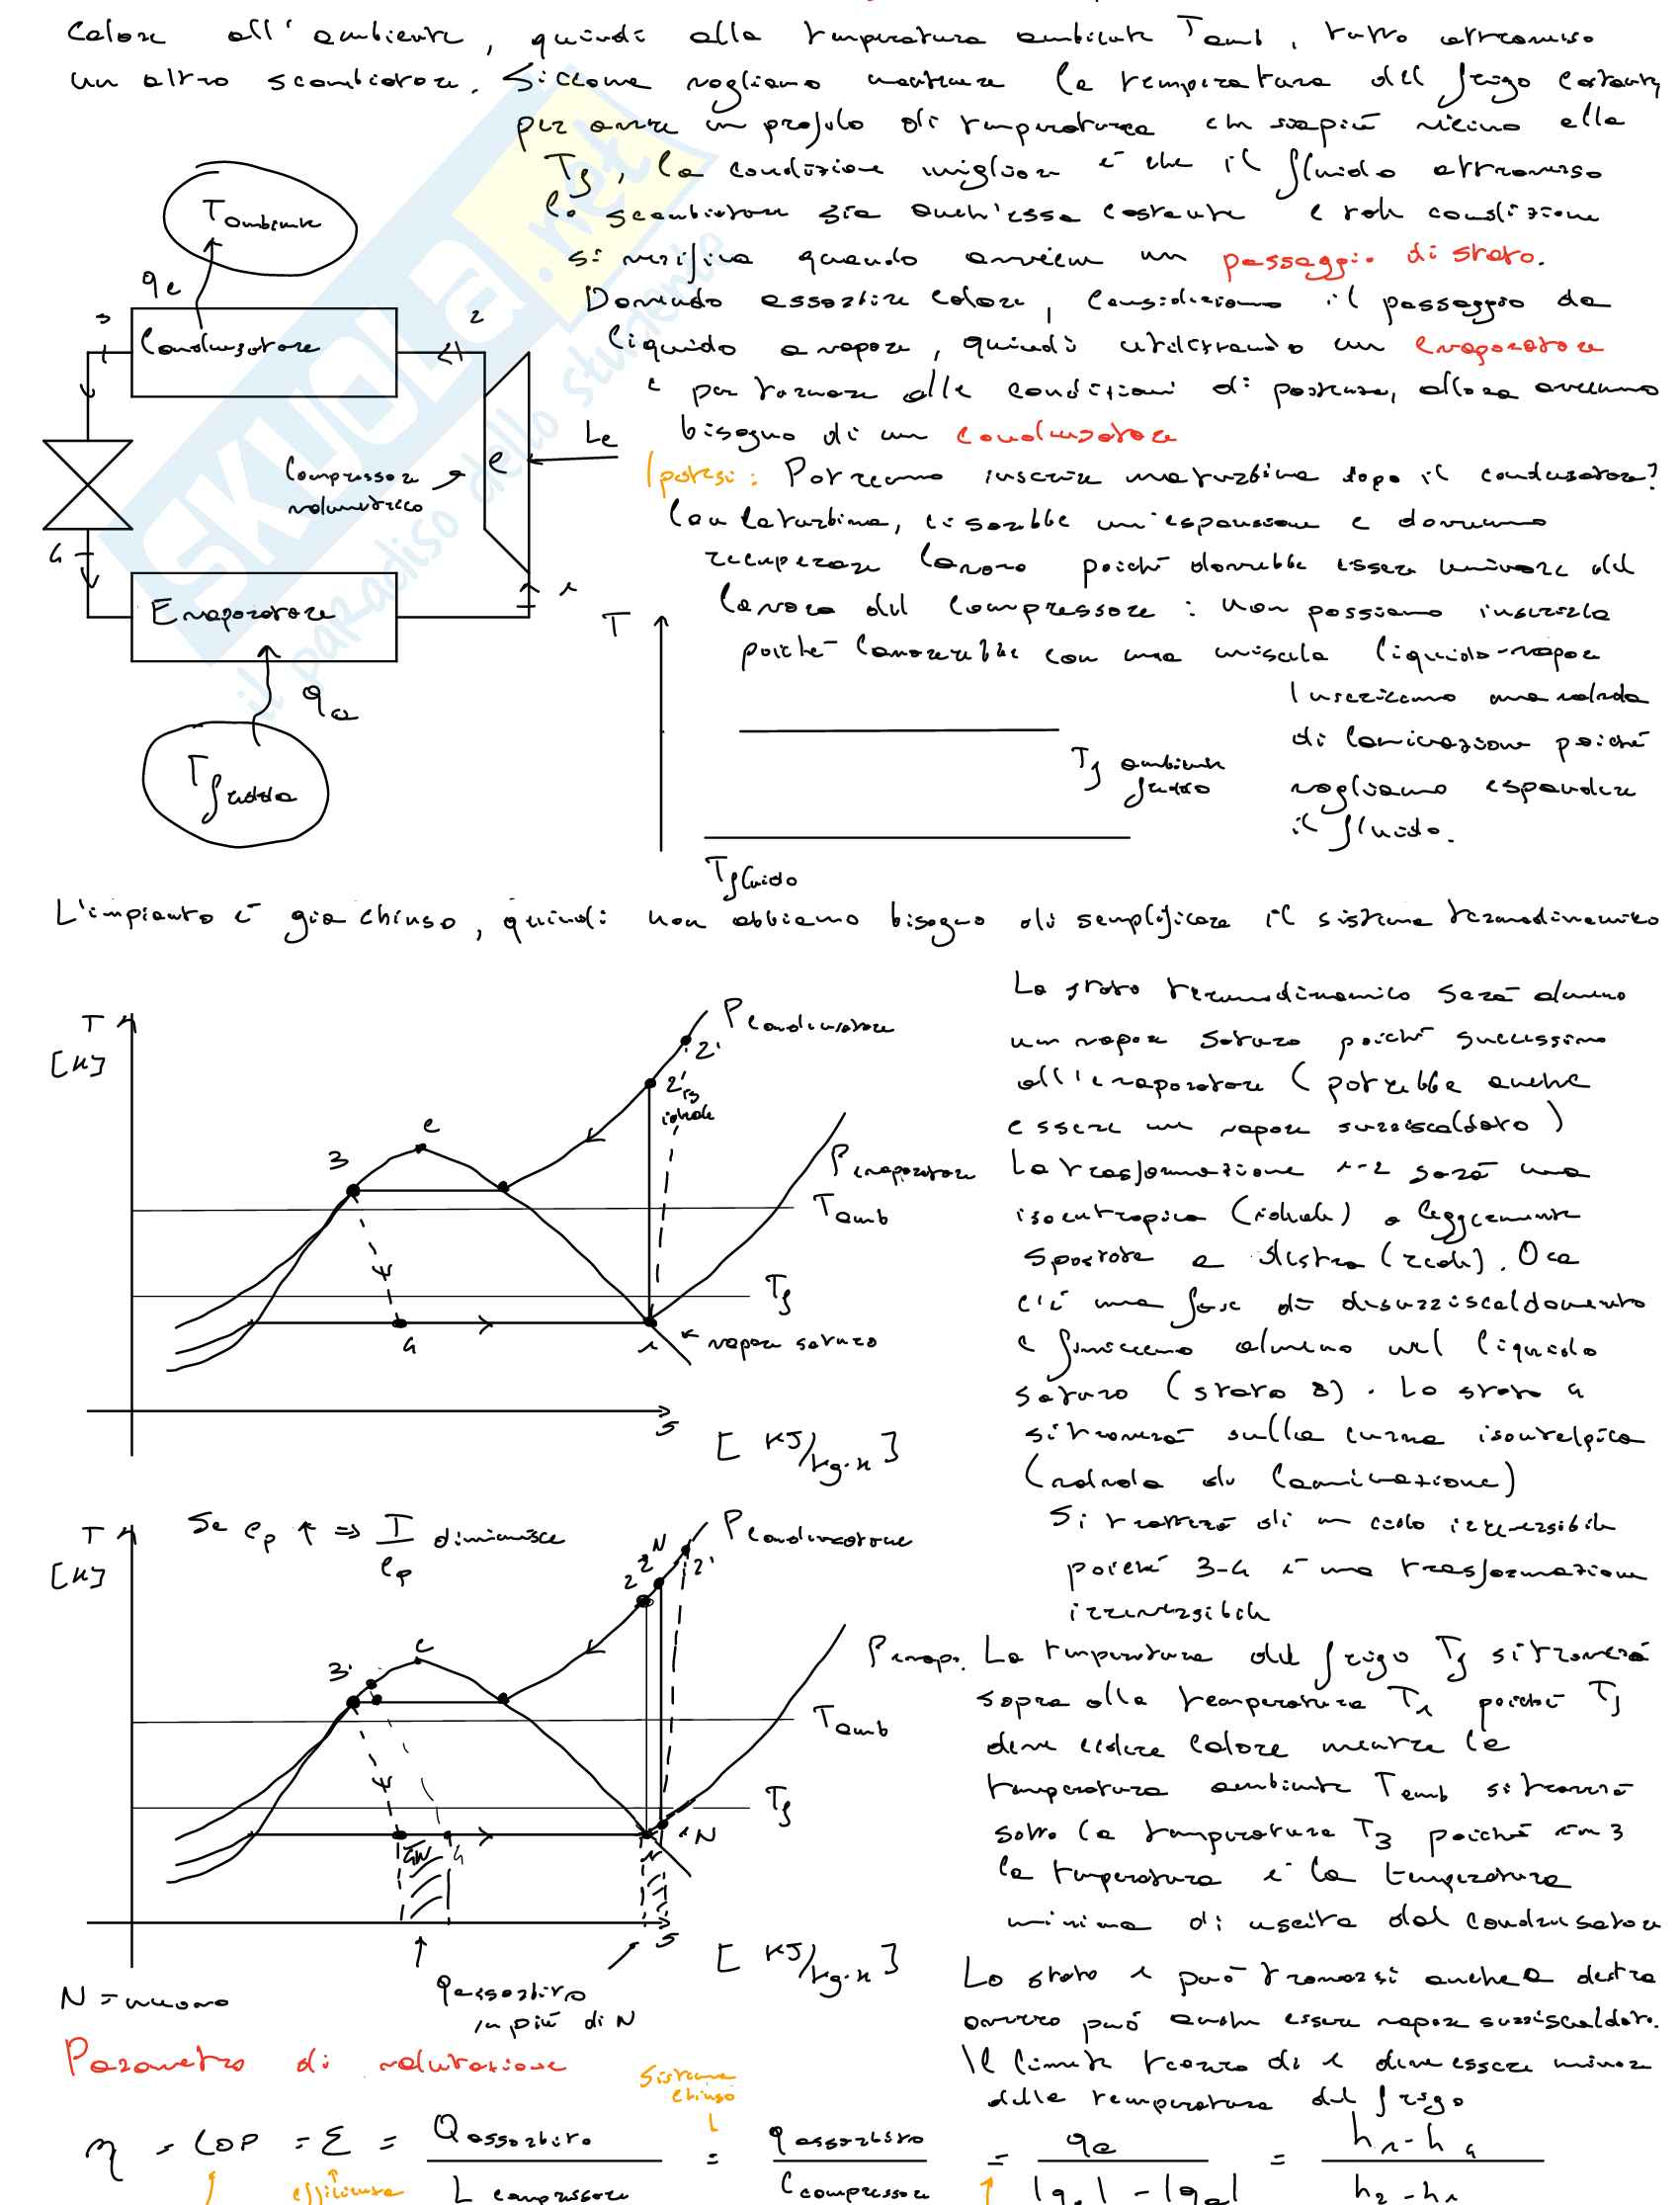 calore all'ambiente, quindi alla temperatura ambiente Tamb, tutto attraverso
un altro scambiatore. Siccome vogliamo mantenere la temperatura del frigo costante,
per avere un profilo di temperatura che sia più vicino alla
Tf, la condizione migliore è che il fluido attraverso
lo scambiatore sia anch'essa costante e tale condizione
si verifica quando avviene un passaggio di stato.
Dovendo assorbire calore, consideriamo il passaggio da
liquido a vapore, quindi utilizzando un evaporatore
e per tornare alle condizioni di partenza, allora avremo
bisogno di un condensatore
Ipotesi: Potremmo inserire una turbina dopo il condensatore?
Con la turbina, ci sarebbe un'espansione e dovremmo
recuperare lavoro poiché dovrebbe essere minore del
lavoro del compressore: non possiamo inserirla
poiché lavorerebbe con una miscela liquido-vapore
Inseriremo una valvola
di laminazione poiché
vogliamo espandere
il fluido.
Tambiente
qc
3
2
Condensatore
Compressore
volumetrico
C
Lc
4
1
Evaporatore
qa
Tfredda
T
Tf ambiente
freddo
Tfluido
SKUOLA.net
il paradiso dello studente
L'impianto è già chiuso, quindi non abbiamo bisogno di semplificare il sistema termodinamico
T
[K]
Pcondensatore
2'
2'is
ideale
c
3
Pevaporatore
Tamb
Tf
4
1
vapore saturo
s
[KJ/kg·K]
Lo stato termodinamico sarà almeno
un vapore saturo poiché successivo
all'evaporatore (potrebbe anche
essere un vapore surriscaldato)
La trasformazione 1-2 sarà una
isoentropica (ideale) o leggermente
spostata a destra (reale). Ora
c'è una fase di desurriscaldamento
e finiremo almeno nel liquido
saturo (stato 3). Lo stato 4
si troverà sulla curva isoentalpica
(valvola di laminazione)
Si tratterà di un ciclo irreversibile
poiché 3-4 è una trasformazione
irreversibile
T
[K]
Se cp ↑ ⇒ I/cp diminuisce
Pcondensatore
2
2N
2'
c
3'
Pevap.
Tamb
Tf
4N
4
1
1N
s
[KJ/kg·K]
N = nuovo
qassorbito
in più di N
La temperatura del frigo Tf si troverà
sopra alla temperatura T1 poiché Tf
deve cedere calore mentre la
temperatura ambiente Tamb si troverà
sotto la temperatura T3 poiché in 3
la temperatura è la temperatura
minima di uscita dal condensatore
Lo stato 1 può trovarsi anche a destra
ovvero può anche essere vapore surriscaldato.
Il limite teorico di 1 deve essere minore
della temperatura del frigo
Parametro di valutazione
Sistema
chiuso
η = COP = Σ = Qassorbito / L compressore = qassorbito / lcompressore = qa / |qc| - |qa| = h1-h4 / h2-h1
efficienza